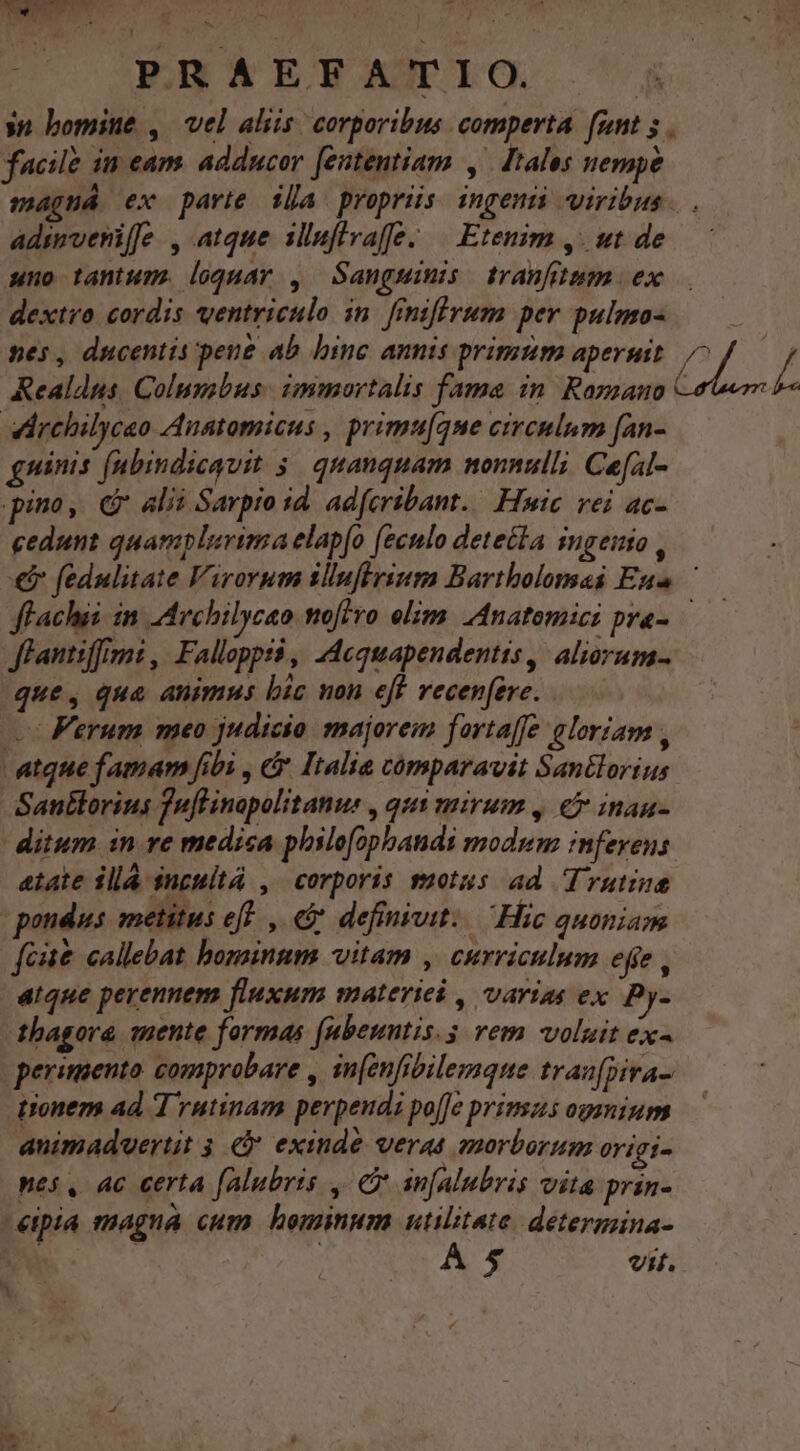 PRAEFATIO.
in homine , vel aliis corporibus comperta ſunt ;
facilè in eam adducor ſententiam , Italos nempè
magnâ ex parte illa propriis ingenii viribus
adinveniſſe , atque illuſtraſſe. Etenim , ut de
uno tantum loquar , Sanguinis tranſitum ex
dextro cordis ventriculo in ſiniſtrum per pulmo-
nes, ducentis penè ab hinc annis primùm aperuit
Realdus Columbus immortalis fama in Romano
Archilycæo Anatomicus , primuſque circulum ſan-
guinis ſubindicavit ; quanquam nonnulli Cæſal-
pino, & alii Sarpio id adſcribant. Huic rei ac-
cedunt quamplurima elapſo ſeculo detecta ingenio ,
& ſedulitate Virorum illuſtrium Bartholomæi Eu-
ſtachii in Archilycæo noſtro olim Anatomici præ-
ſtantiſſimi, Falloppii, Acquapendentis, aliorum-
que, quæ animus hìc non eſt recenſere.
Verum meo judicio majorem fortaſſe gloriam ,
atque famam ſibi , & Italiæ comparavit Sanctorius
Sanctorius Juſtinopolitanus , qui mirum , & inau-
ditum in re medica philoſophandi modum inferens
ætate illâ incultâ , corporis motus ad Trutinæ
pondus metitus eſt , & definivit. Hic quoniam
ſcitè callebat hominum vitam , curriculum eſſe ,
atque perennem fluxum materiei , varias ex Py-
thagoræ mente formas ſubeuntis ; rem voluit ex-
perimento comprobare , inſenſibilemque tranſpira-
tionem ad Trutinam perpendi poſſe primus omnium
animadvertit ; & exindè veras morborum origi-
nes, ac certa ſalubris , & inſalubris vitæ prin-
cipia magnâ cum hominum utilitate determina-
A 5 vit.